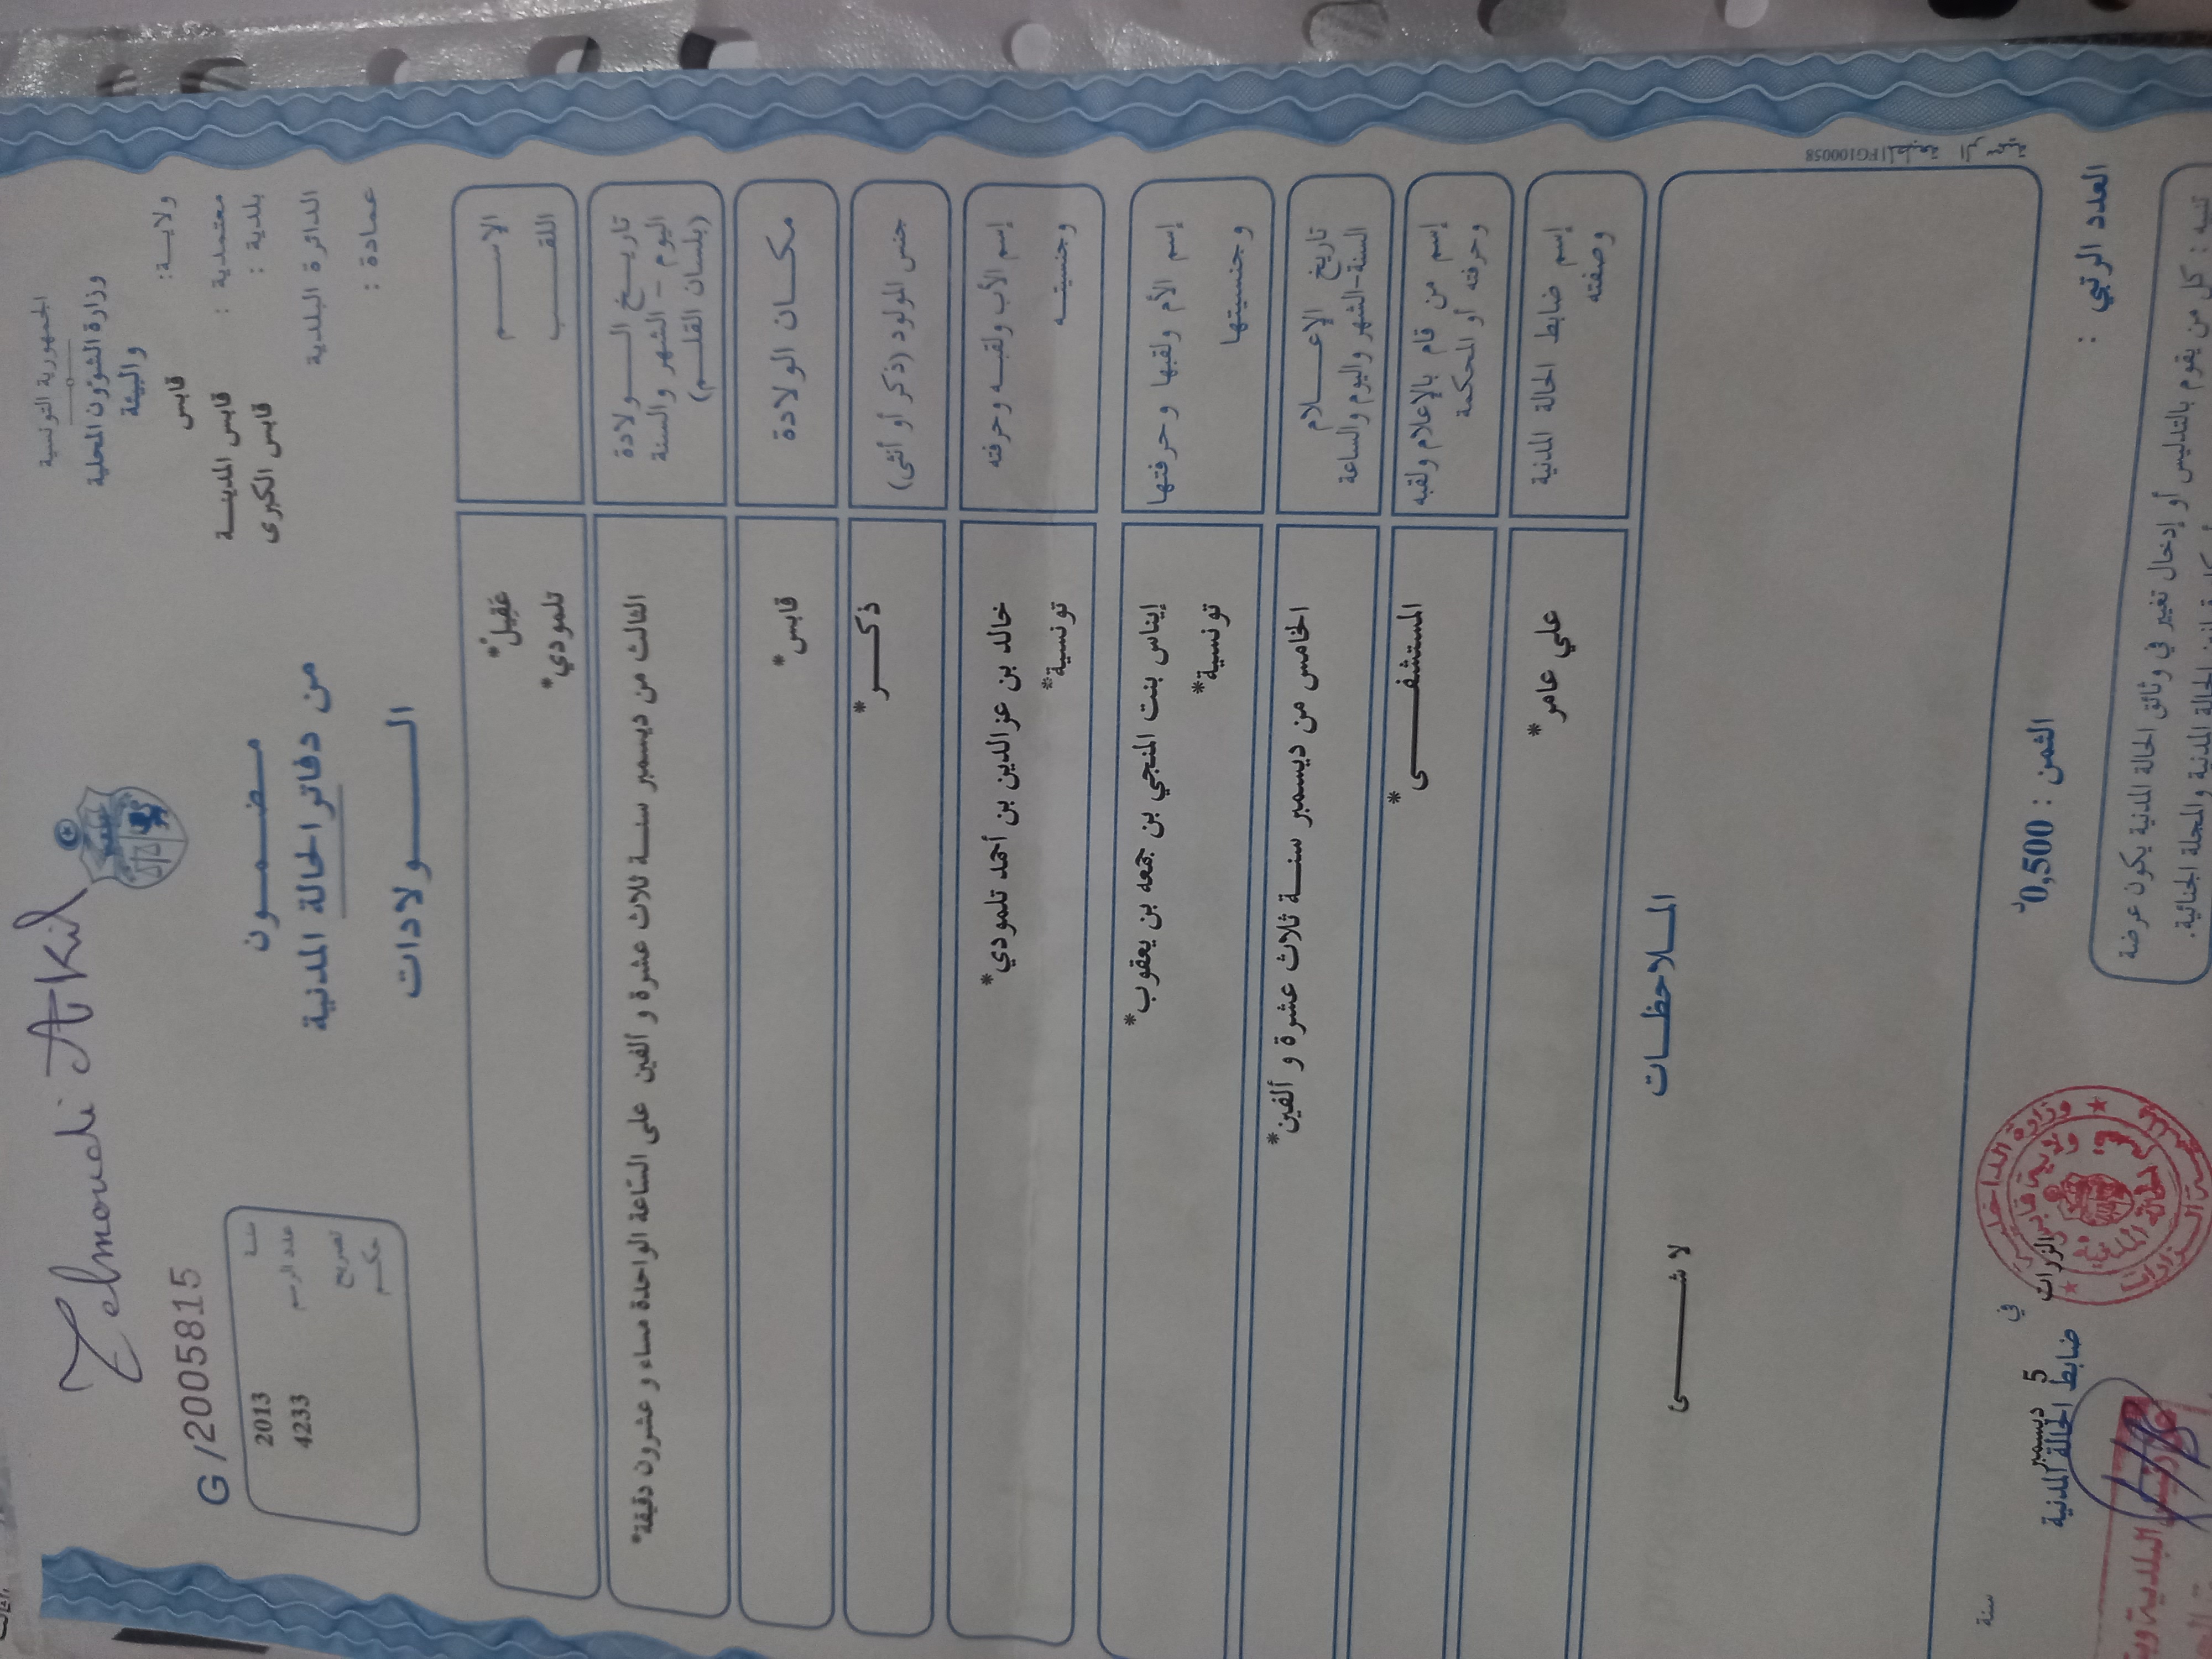 Telmoudi Akil
الجمهورية التونسية
وزارة الشؤون المحلية
والبيئة
ولايــة: قابس
معتمدية : قابس المدينــة
بلدية : قابس الكبرى
الدائرة البلدية
عمادة :
G/20058815
سنة 2013
عدد الرسم 4233
تصريح
حكم
مـضـمــون
من دفاتر الحالة المدنية
الــولادات
الاســـم عَقِيلْ*
اللقــب تلمودي*
تاريـخ الــولادة
اليوم - الشهر والسنة
(بلسان القلــم)
الثالث من ديسمبر سنــة ثلاث عشرة و ألفين على السّاعة الواحدة مساء و عشرون دقيقة*
مكـان الولادة قابس*
جنس المولود (ذكر أو أنثى) ذكــر*
إسم الأب ولقبـه وحرفته خالد بن عزالدين بن أحمد تلمودي*
وجنسيتــه تونسية*
إسم الأم ولقبها وحرفتها إيناس بنت المنجي بن جمعه بن يعقوب*
وجنسيتها تونسية*
تاريخ الإعـــلام
السنة-الشهر واليوم والساعة
الخامس من ديسمبر سنــة ثلاث عشرة و ألفين*
إسم من قام بالإعلام ولقبه
وحرفته أو المحكمة
المستشفـــى*
إسم ضابط الحالة المدنية
وصفته
علي عامر*
المـلاحظـات
لا شـــى
FG100058
العدد الرتبي :
الثمن : 0,500د
الزرات في 5 ديسمبر سنة
ضابط الحالة المدنية
وزارة الداخلية
ولاية قابس
الحالة المدنية
تنبيه : كل من يقوم بالتدليس أو إدخال تغيير في وثائق الحالة المدنية يكون عرضة
الحالة المدنية والمجلة الجنائية.